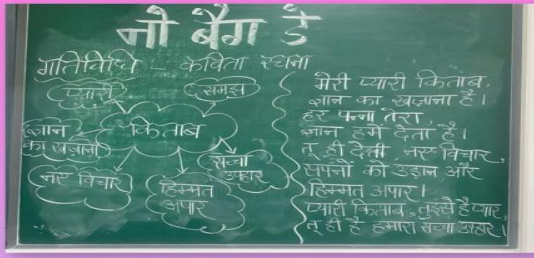 नो बैग डे
गतिविधि – कविता रचना
प्यारी
समझ
किताब
ज्ञान
का खज़ाना
सच्चा
उपहार
नए विचार
हिम्मत
अपार
मेरी प्यारी किताब,
ज्ञान का खज़ाना है।
हर पन्ना तेरा,
ज्ञान हमें देता है।
तू ही देती नए विचार,
सपनों को उड़ान और
हिम्मत अपार।
प्यारी किताब, तुझसे है प्यार,
तू ही है हमारा सच्चा उपहार।